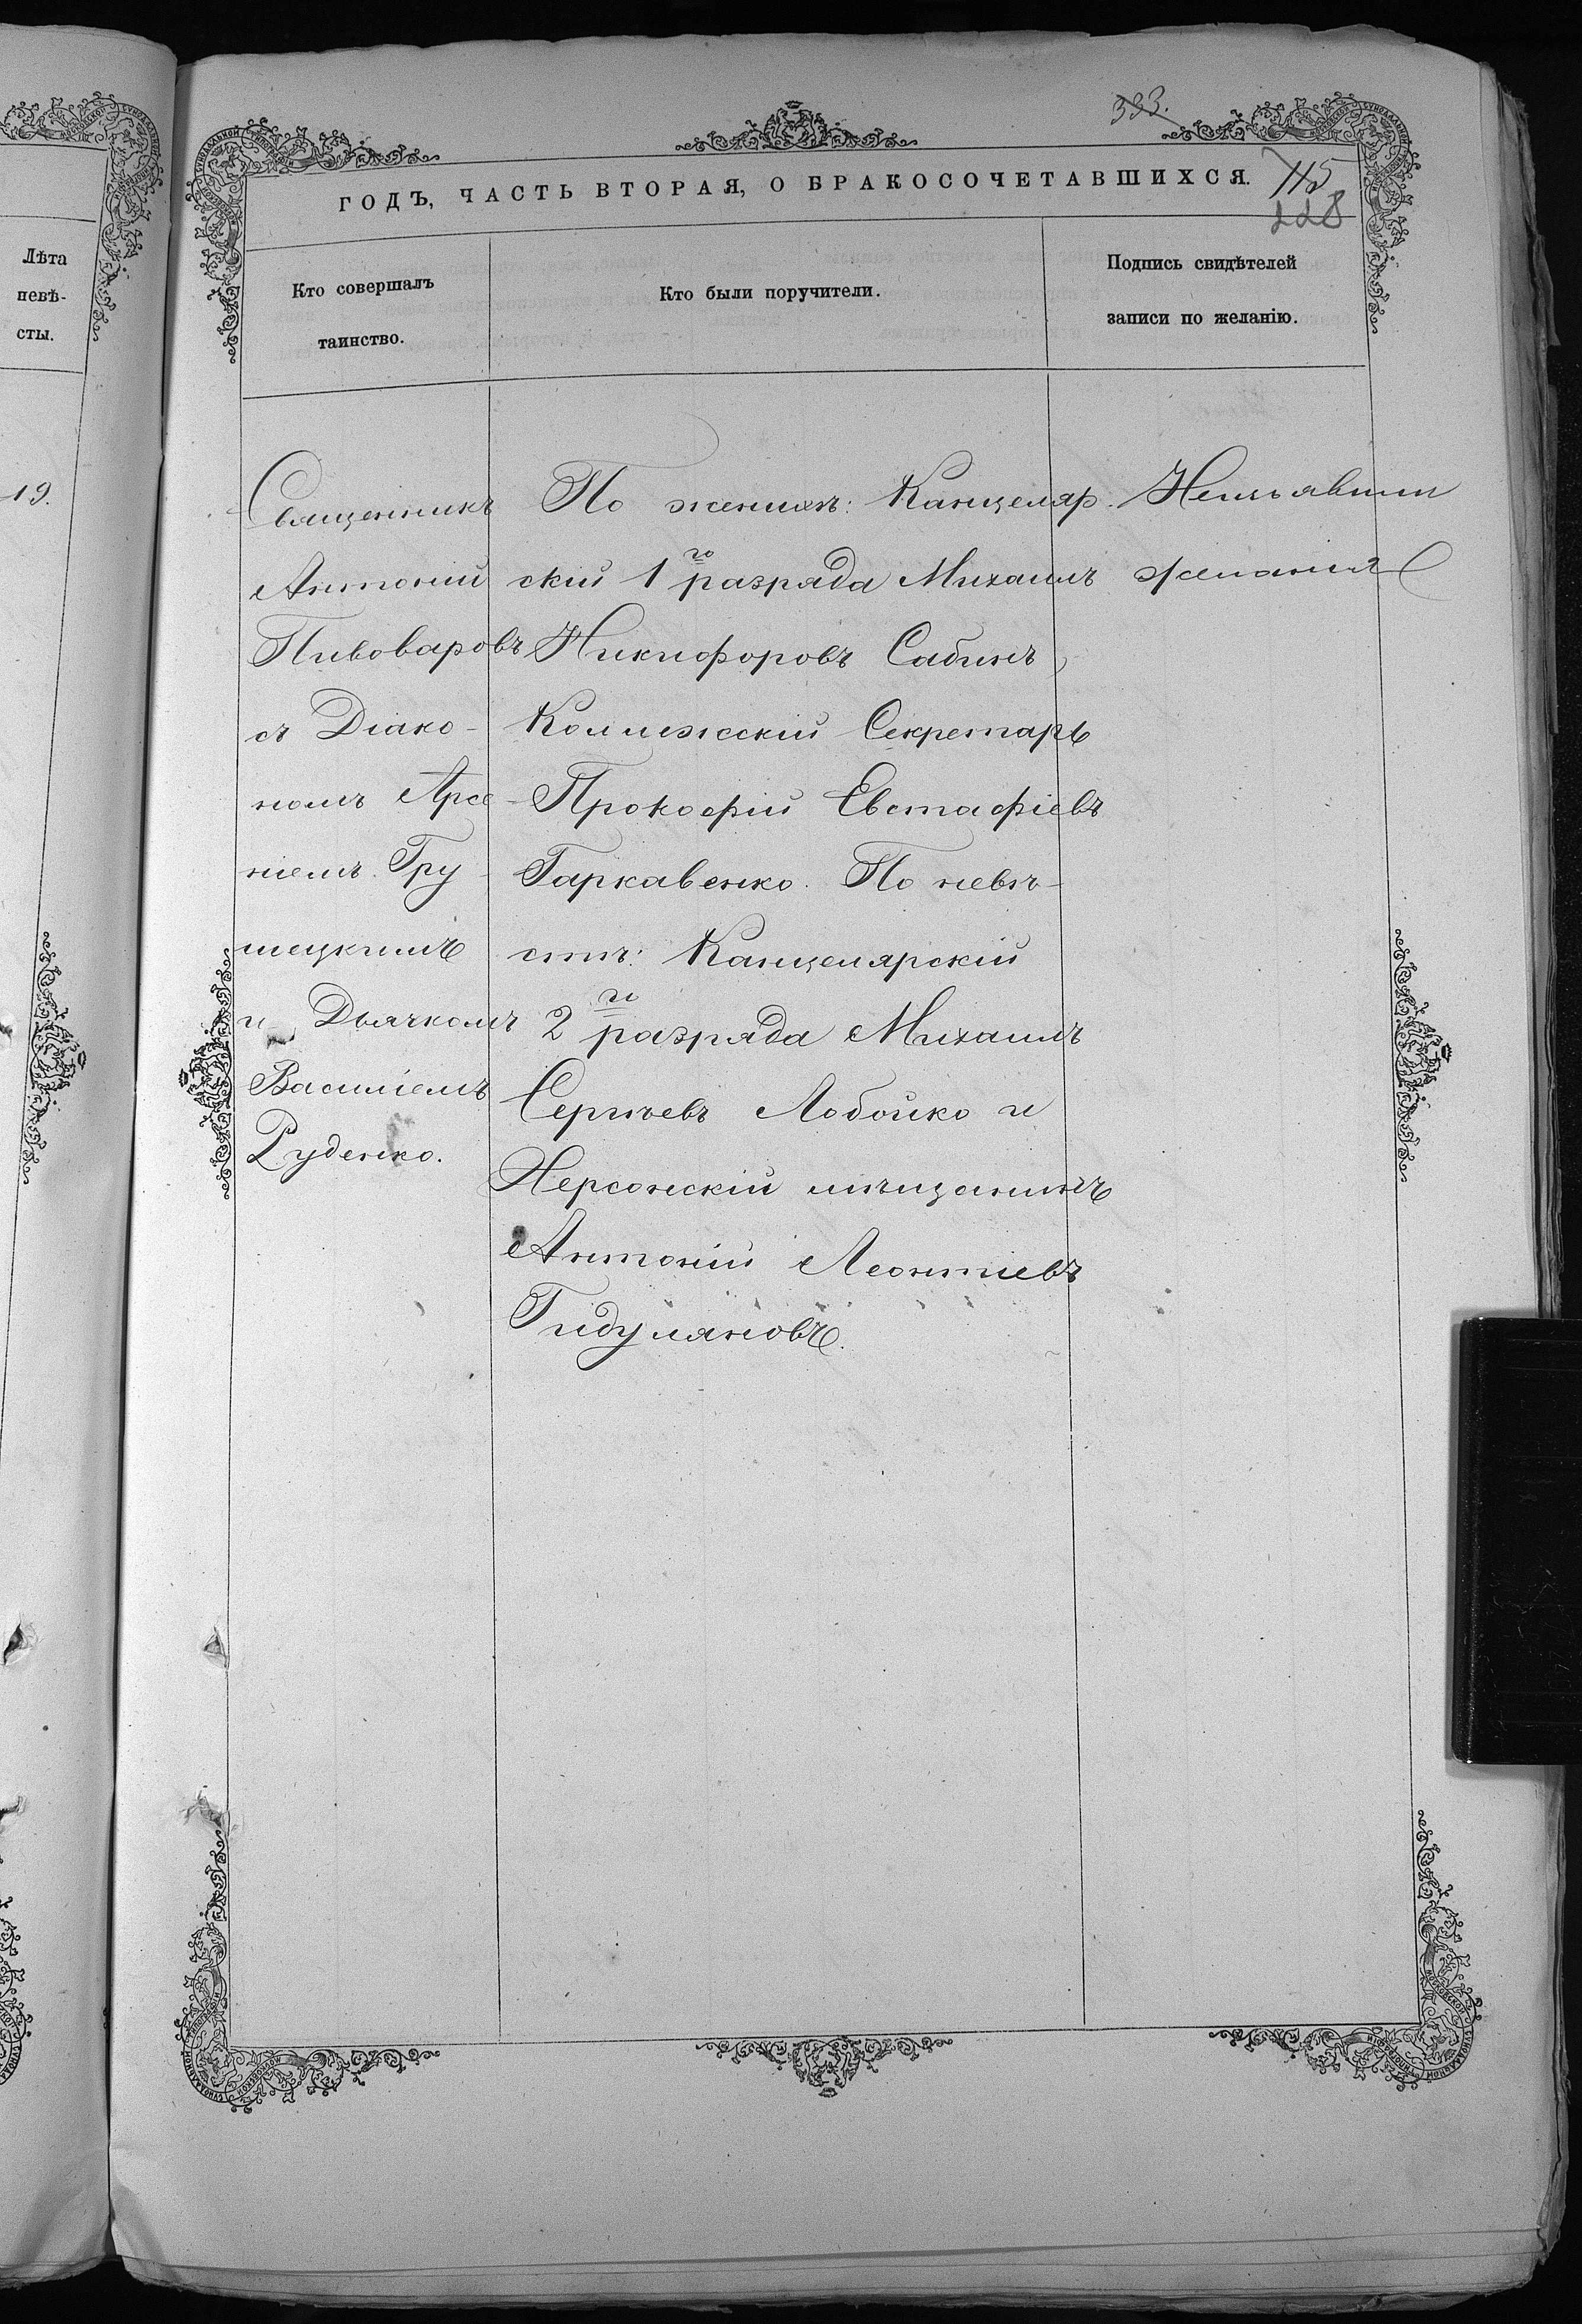 Лѣта
невѣ-
сты.
19.
393.
ГОДЪ, ЧАСТЬ ВТОРАЯ, О БРАКОСОЧЕТАВШИХСЯ.
115
228
Кто совершалъ
таинство.
Кто были поручители.
Подпись свидѣтелей
записи по желанію.
Священникъ
Антоній
Пивоваровъ
съ Діако-
номъ Арсе-
ніемъ Гру-
шецкимъ
и Дьячкомъ
Василіемъ
Руденко.
По женихѣ: Канцеляр-
скій 1го разряда Михаилъ
Никифоровъ Сабинъ,
Коллежскій Секретарь
Прокофій Евстафіевъ
Гаркавенко. По невѣ-
стѣ: Канцелярскій
2го разряда Михаилъ
Сергѣевъ Лобойко и
Херсонскій мѣщанинъ
Антоній Леонтіевъ
Гидуляновъ.
Неизъявили
желанія